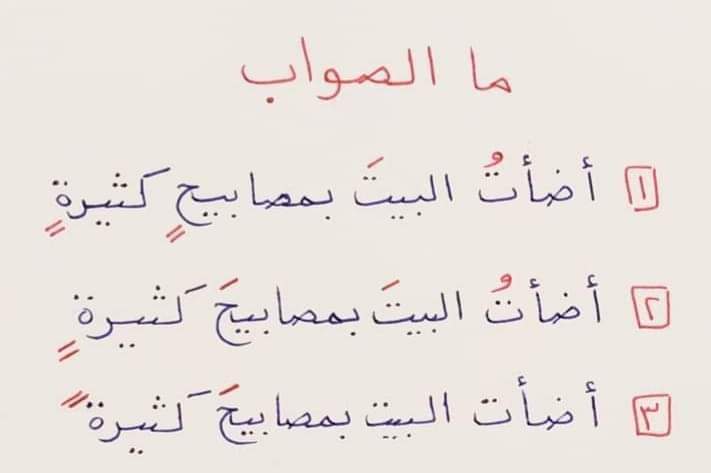 ما الصواب
١ أضأتُ البيتَ بمصابيحٍ كثيرةٍ
٢ أضأتُ البيتَ بمصابيحَ كثيرةٍ
٣ أضأت البيت بمصابيحَ كثيرةً